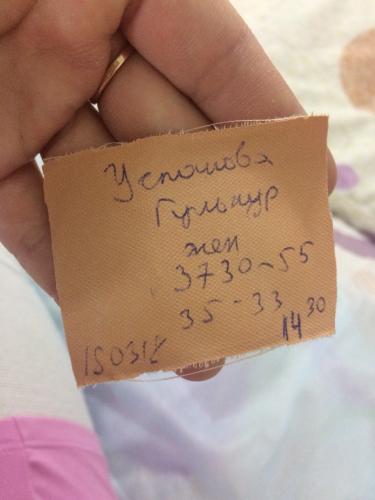 Успанова
Гульнур
жен
3730-55
35-33
150318
14 30